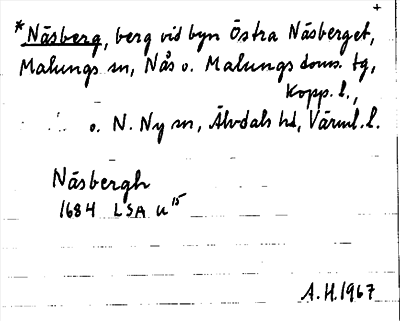 +
*Näsberg, berg vid byn Östra Näsberget,
Malungs sn, Nås o. Malungs doms. tg,
Kopp. l.,
o. N. Ny sn, Älvdals hd, Värml. l.
Näsbergh
1684 LSA u 15
A.H. 1967